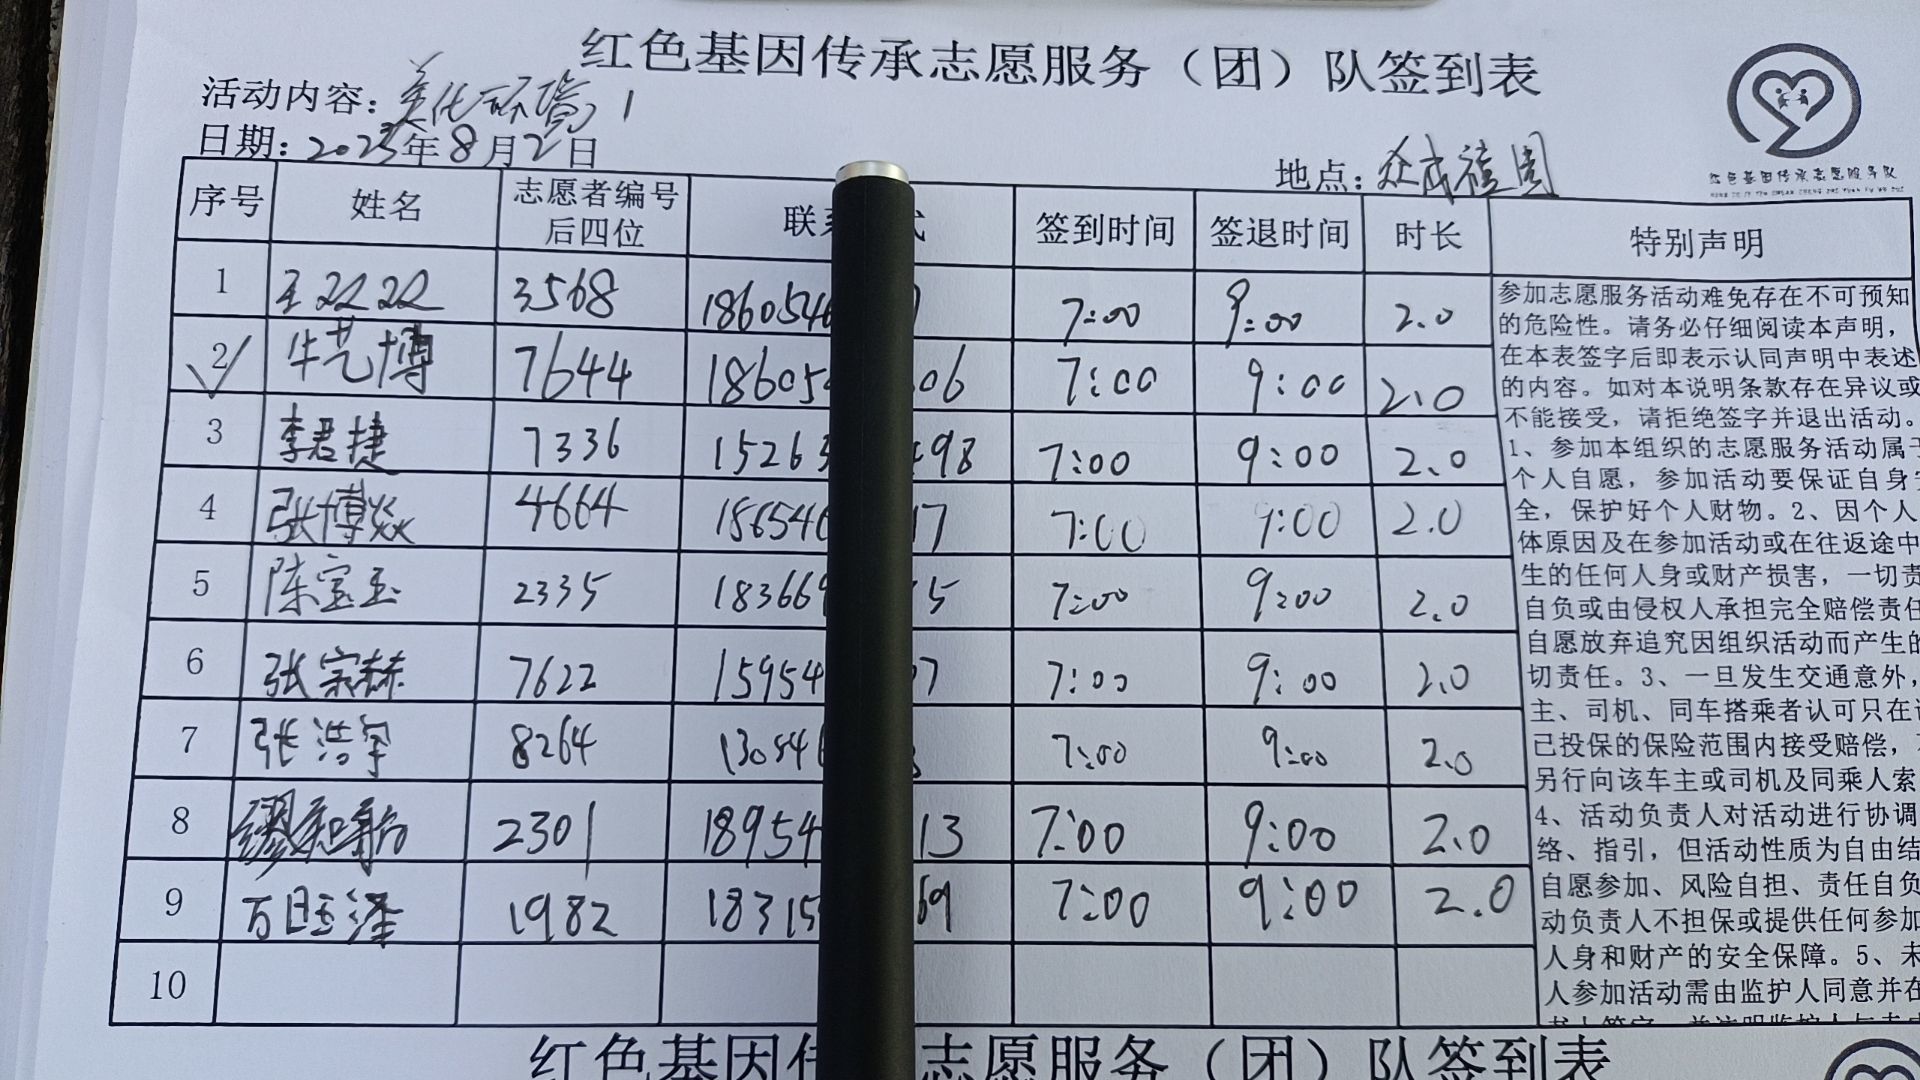 红色基因传承志愿服务（团）队签到表
活动内容：美化环境1
日期：2023年8月2日
地点：众成禧园
红色基因传承志愿服务队
序号 姓名 志愿者编号后四位 联 签到时间 签退时间 时长 特别声明
1 王 3568 1860546 7:00 9:00 2.0
2 牛艺博 7644 18605 06 7:00 9:00 2.0
3 李君捷 7336 15263 98 7:00 9:00 2.0
4 张博焱 4664 186546 17 7:00 9:00 2.0
5 陈宝玉 2335 183669 5 7:00 9:00 2.0
6 张宗赫 7622 15954 07 7:00 9:00 2.0
7 张浩宇 8264 130546 7:00 9:00 2.0
8 2301 18954 13 7:00 9:00 2.0
9 万国泽 1982 18315 69 7:00 9:00 2.0
10
参加志愿服务活动难免存在不可预知
的危险性。请务必仔细阅读本声明，
在本表签字后即表示认同声明中表述
的内容。如对本说明条款存在异议或
不能接受，请拒绝签字并退出活动。
1、参加本组织的志愿服务活动属于
个人自愿，参加活动要保证自身安
全，保护好个人财物。2、因个人
体原因及在参加活动或在往返途中
生的任何人身或财产损害，一切责
自负或由侵权人承担完全赔偿责任
自愿放弃追究因组织活动而产生的
切责任。3、一旦发生交通意外，
主、司机、同车搭乘者认可只在该
已投保的保险范围内接受赔偿，不
另行向该车主或司机及同乘人索
4、活动负责人对活动进行协调
络、指引，但活动性质为自由结
自愿参加、风险自担、责任自负
动负责人不担保或提供任何参加
人身和财产的安全保障。5、未
人参加活动需由监护人同意并在
红色基因传 志愿服务（团）队签到表